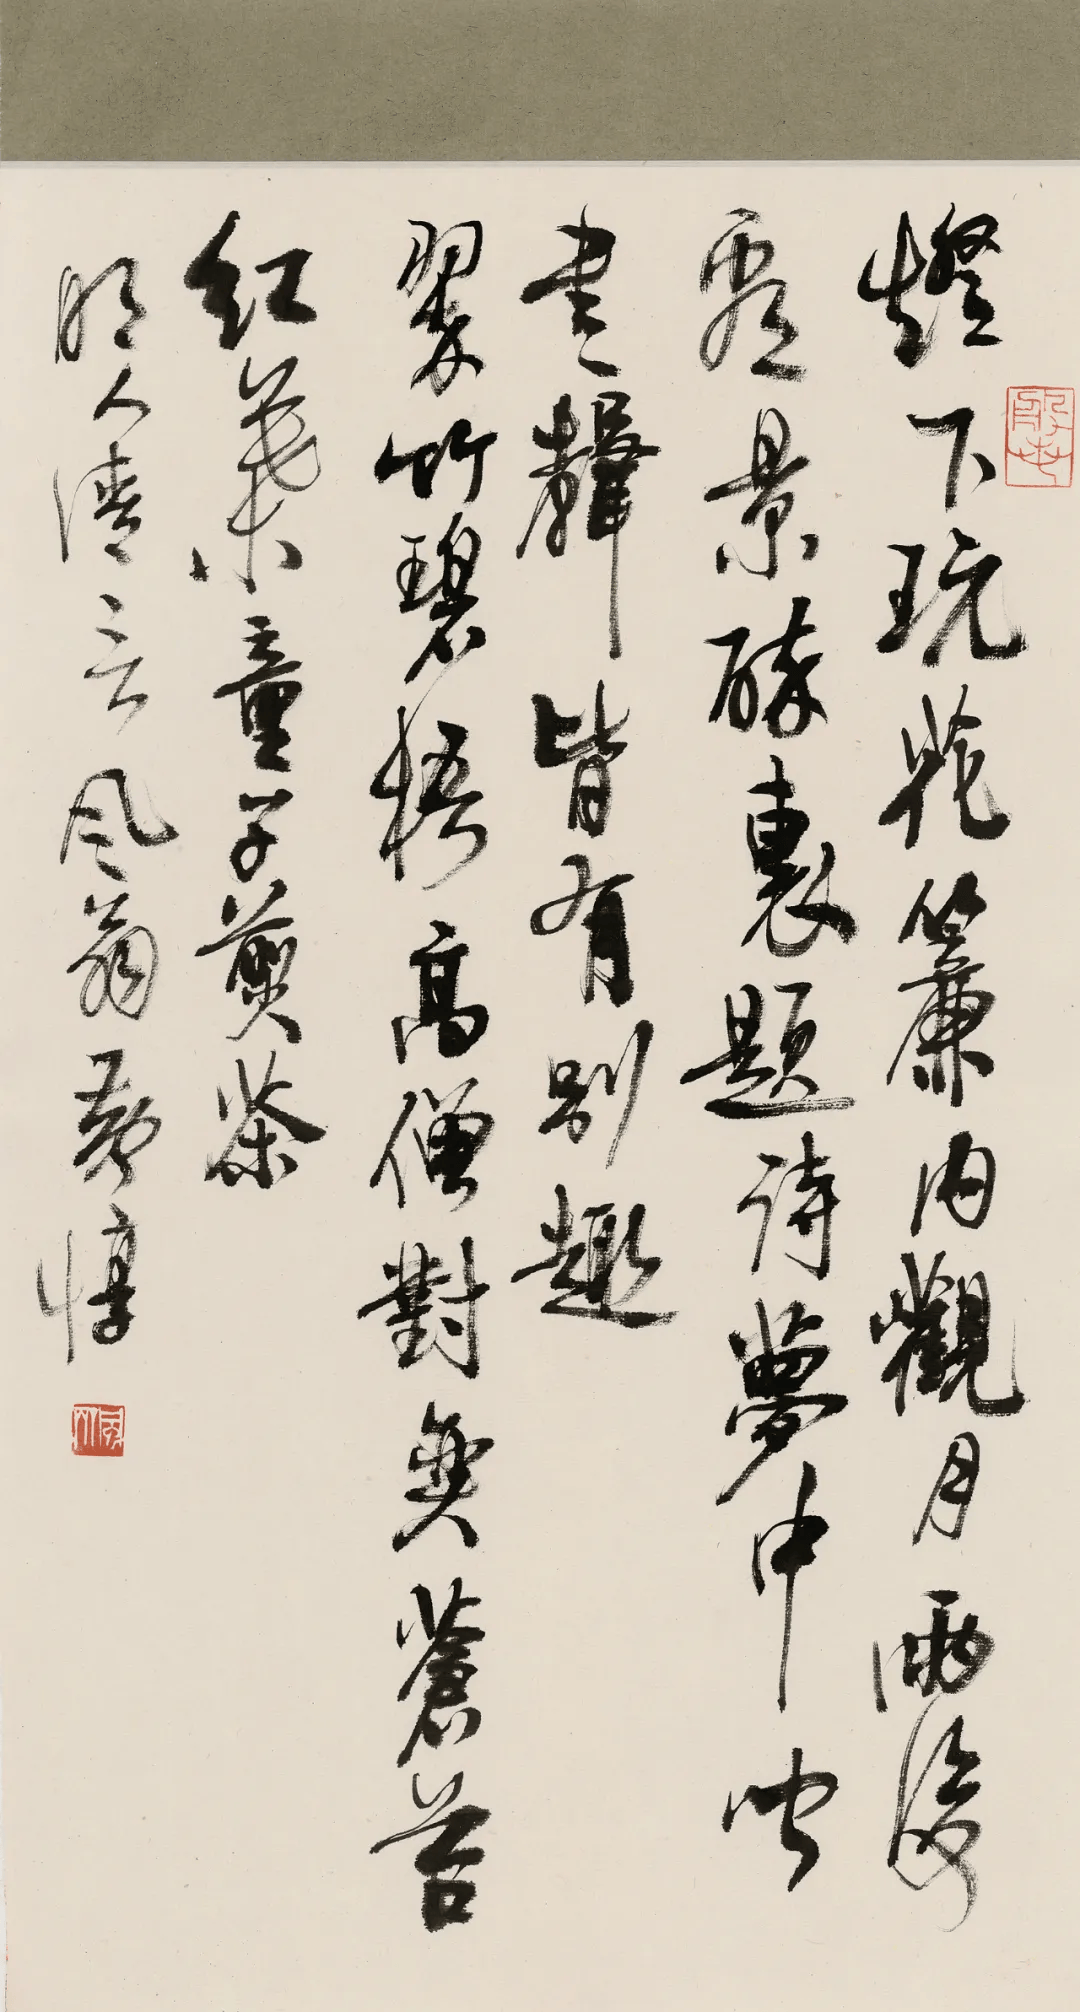 燈下玩花簾内觀月雨後
景醉裏題詩夢中聞
書聲皆有別趣
翠竹碧梧高僧對奕蒼苔
紅葉童子煎茶
明人清言風翁黃惇